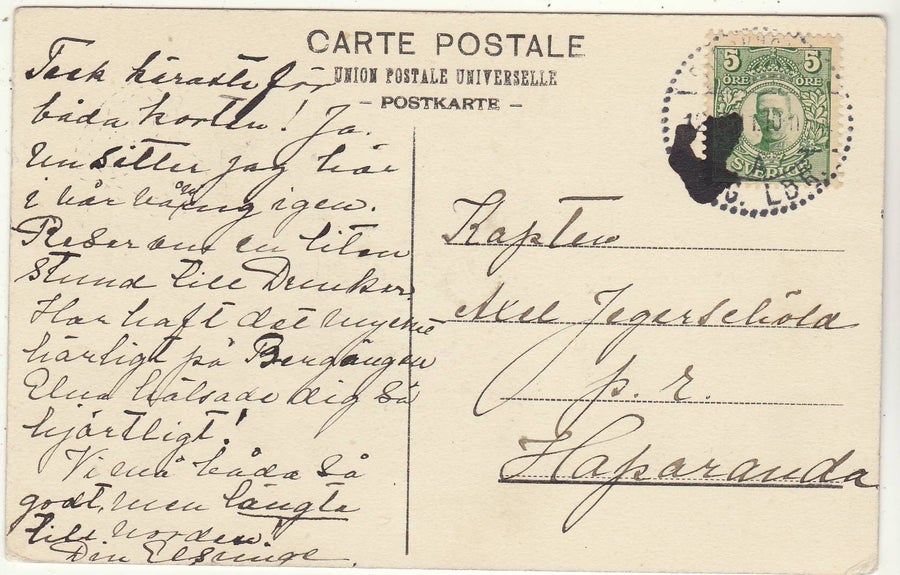 CARTE POSTALE
UNION POSTALE UNIVERSELLE
– POSTKARTE –
Tack käraste för
båda korten! Ja.
nu sitter jag här
i vår våning igen.
Reser om en liten
stund till
Har haft det mycke
härligt på
Elna hälsade dig så
hjärtligt!
Vi må båda så
godt, men längta
till norden.
Din
5 5
ÖRE ÖRE
SVERIGE
LBR.
Kapten
Axel Jegerschöld
p. r.
Haparanda